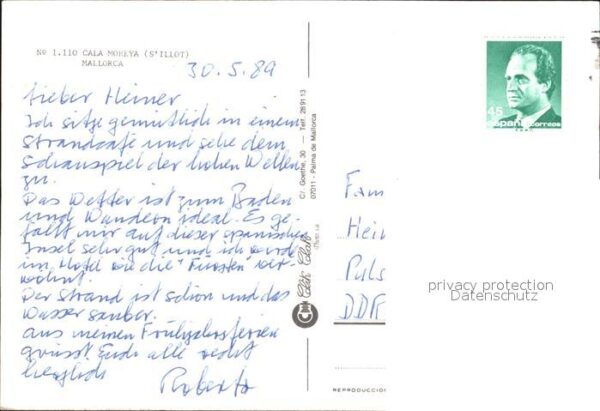 Nº 1.110 CALA MOREYA (S'ILLOT)
MALLORCA
30.5.89
Lieber Heiner
Ich sitze gemütlich in einem
Strandcafe und sehe dem
Schauspiel der hohen Wellen
zu.
Das Wetter ist zum Baden
und Wandern ideal. Es ge-
fällt mir auf dieser spanischen
Insel sehr gut und ich werde
im Hotel wie die "Fürsten" ver-
wöhnt.
Der Strand ist schön und das
Wasser sauber.
Aus meinen Frühjahrsferien
grüsst Euch alle recht
herzlich
Roberto
C/. Goethe, 30 — Telf. 289113
07011 - Palma de Mallorca
REPRODUCCIO
45
España correos
Fam
Hei
Puls
DDR
privacy protection
Datenschutz